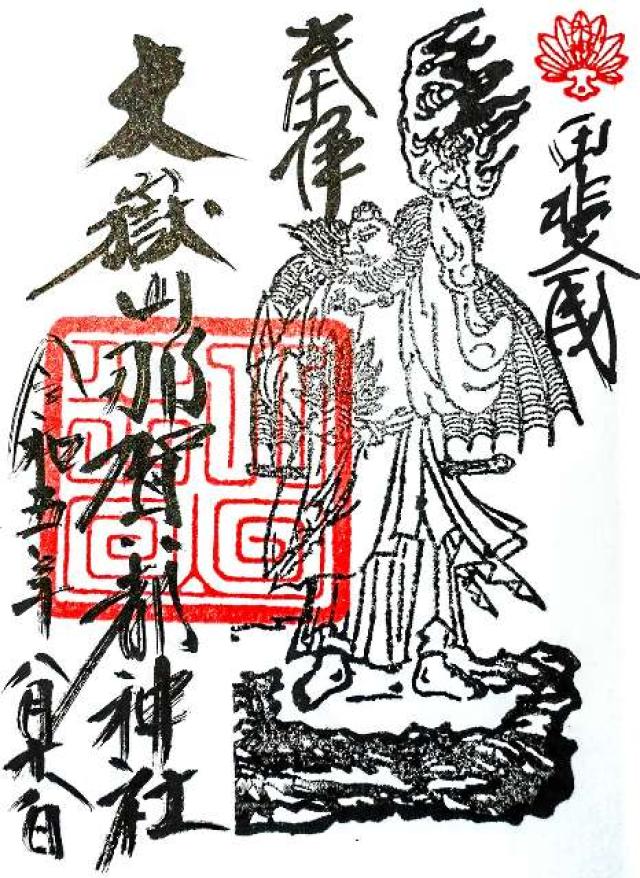 甲斐国
奉拝
大嶽山那賀都神社
令和五年 八月十六日